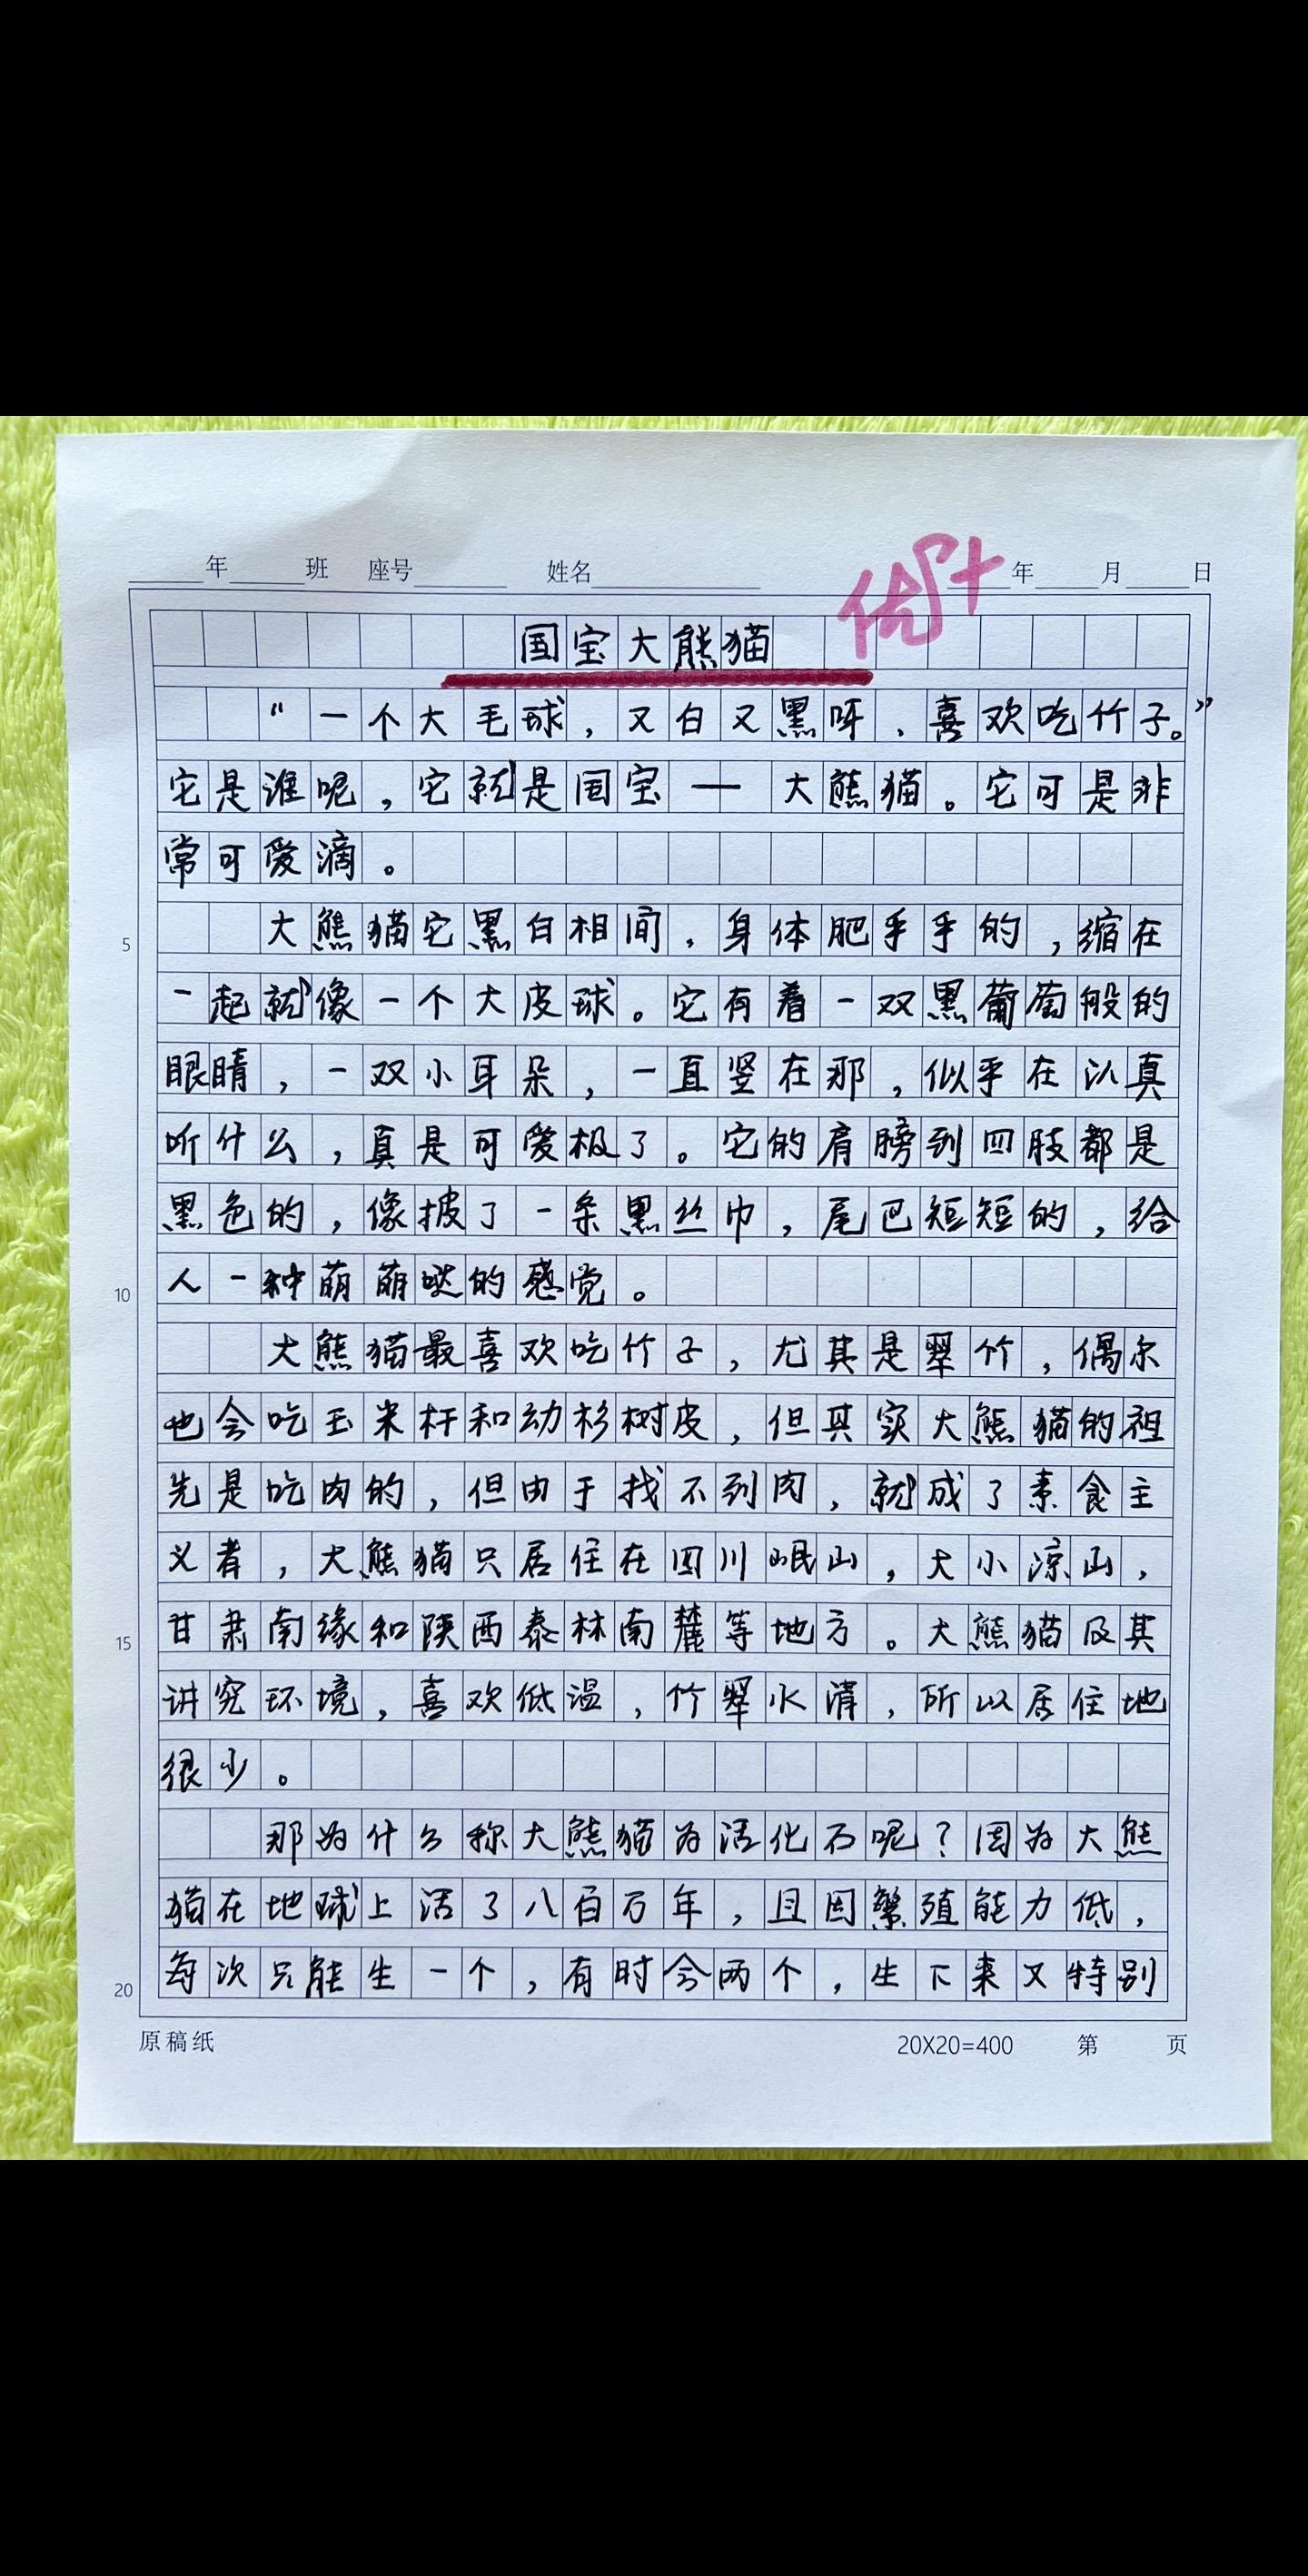 年 班 座号 姓名 年 月 日
优+
国宝大熊猫
“一个大毛球，又白又黑呀，喜欢吃竹子。”
它是谁呢，它就是国宝——大熊猫。它可是非
常可爱滴。
大熊猫它黑白相间，身体肥乎乎的，缩在
一起就像一个大皮球。它有着一双黑葡萄般的
眼睛，一双小耳朵，一直竖在那，似乎在认真
听什么，真是可爱极了。它的肩膀到四肢都是
黑色的，像披了一条黑丝巾，尾巴短短的，给
人一种萌萌哒的感觉。
大熊猫最喜欢吃竹子，尤其是翠竹，偶尔
也会吃玉米杆和幼杉树皮，但其实大熊猫的祖
先是吃肉的，但由于找不到肉，就成了素食主
义者，大熊猫只居住在四川岷山，大小凉山，
甘肃南缘和陕西泰林南麓等地方。大熊猫及其
讲究环境，喜欢低温，竹翠水清，所以居住地
很少。
那为什么称大熊猫为活化石呢？因为大熊
猫在地球上活了八百万年，且因繁殖能力低，
每次只能生一个，有时会两个，生下来又特别
5
10
15
20
原稿纸 20X20=400 第 页